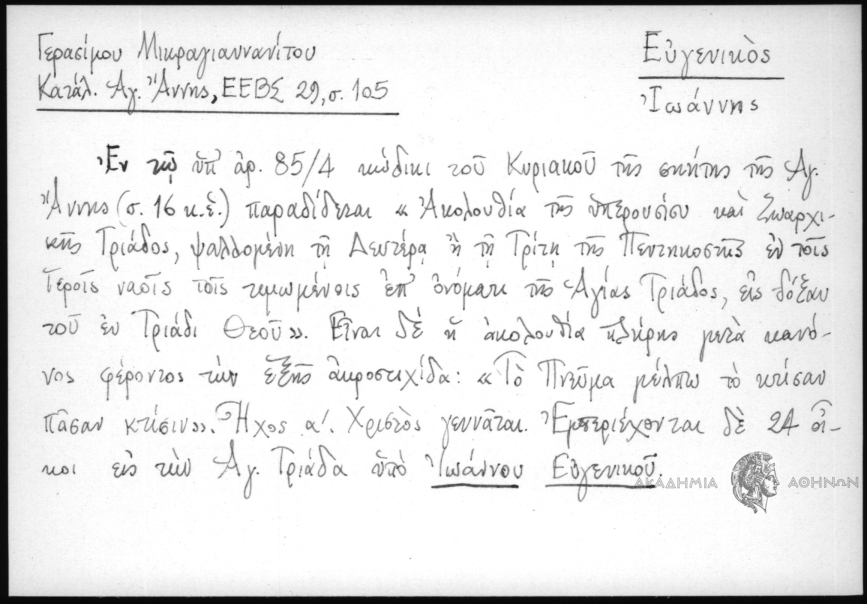 Γερασίμου Μικραγιαννανίτου
Κατάλ. Ἁγ. Ἄννης, ΕΕΒΣ 29, σ. 105
Εὐγενικὸς
Ἰωάννης
Ἐν τῷ ὑπ' ἀρ. 85/4 κώδικι τοῦ Κυριακοῦ τῆς σκήτης τῆς Ἁγ.
Ἄννης (σ. 16 κ.ἑ.) παραδίδεται « Ἀκολουθία τῆς ὑπερουσίου καὶ Ζωαρχι-
κῆς Τριάδος, ψαλλομένη τῇ Δευτέρᾳ ἢ τῇ Τρίτῃ τῆς Πεντηκοστῆς ἐν τοῖς
Ἱεροῖς ναοῖς τοῖς τιμωμένοις ἐπ' ὀνόματι τῆς Ἁγίας Τριάδος, εἰς δόξαν
τοῦ ἐν Τριάδι Θεοῦ». Εἶναι δὲ ἡ ἀκολουθία πλήρης μετὰ κανό-
νος φέροντος τὴν ἑξῆς ἀκροστιχίδα: « Τὸ Πνεῦμα μέλπω τὸ κτίσαν
πᾶσαν κτίσιν». Ἦχος α΄. Χριστὸς γεννᾶται. Ἐμπεριέχονται δὲ 24 οἶ-
κοι εἰς τὴν Ἁγ. Τριάδα ὑπὸ Ἰωάννου Εὐγενικοῦ.
ΑΚΑΔΗΜΙΑ ΑΘΗΝΩΝ